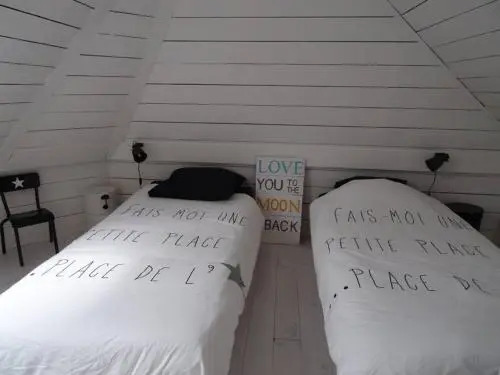 FAIS-MOI UNE
PETITE PLACE
..PLACE DE L'
LOVE
YOU TO THE
MOON
BACK
FAIS-MOI UNE
PETITE PLACE
...PLACE DE